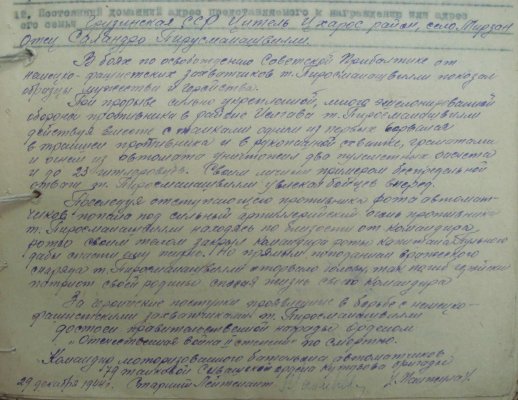 12. Постоянный домашний адрес представляемого к награждению или адрес
его семьи Грузинская ССР Цители Цкарос район, село Мирзан
Отец Силандро Пиросманашвили.
В боях по освобождению Советской Прибалтики от
немецко-фашистских захватчиков т. Пиросманашвили показал
образцы мужества и геройства.
При прорыве сильно укрепленной, много эшелонированной
обороны противника в районе Иелгава т. Пиросманашвили
действуя вместе с танками одним из первых ворвался
в траншеи противника и в рукопашной схватке, гранатами
и огнем из автомата уничтожил два пулеметных расчета
и до 23 гитлеровцев. Своим личным примером беспредельной
отваги т. Пиросманашвили увлекал бойцов вперед.
Преследуя отступающего противника рота автомат-
чиков попала под сильный артиллерийский огонь противника
т. Пиросманашвили находясь по близости от командира
роты своим телом закрыл командира роты капитана
дабы спасти ему жизнь. Но прямым попаданием вражеского
снаряда т. Пиросманашвили оторвало голову, так погиб
патриот своей родины спасая жизнь своего командира
За геройские поступки проявленные в борьбе с немецко-
фашистскими захватчиками т. Пиросманашвили
достоин правительственной награды орденом
"Отечественная война степени" по смертно.
Командир моторизованного батальона автоматчиков
79 танковой Сивашской ордена Кутузова бригады
29 декабря 1944 г. Старший Лейтенант